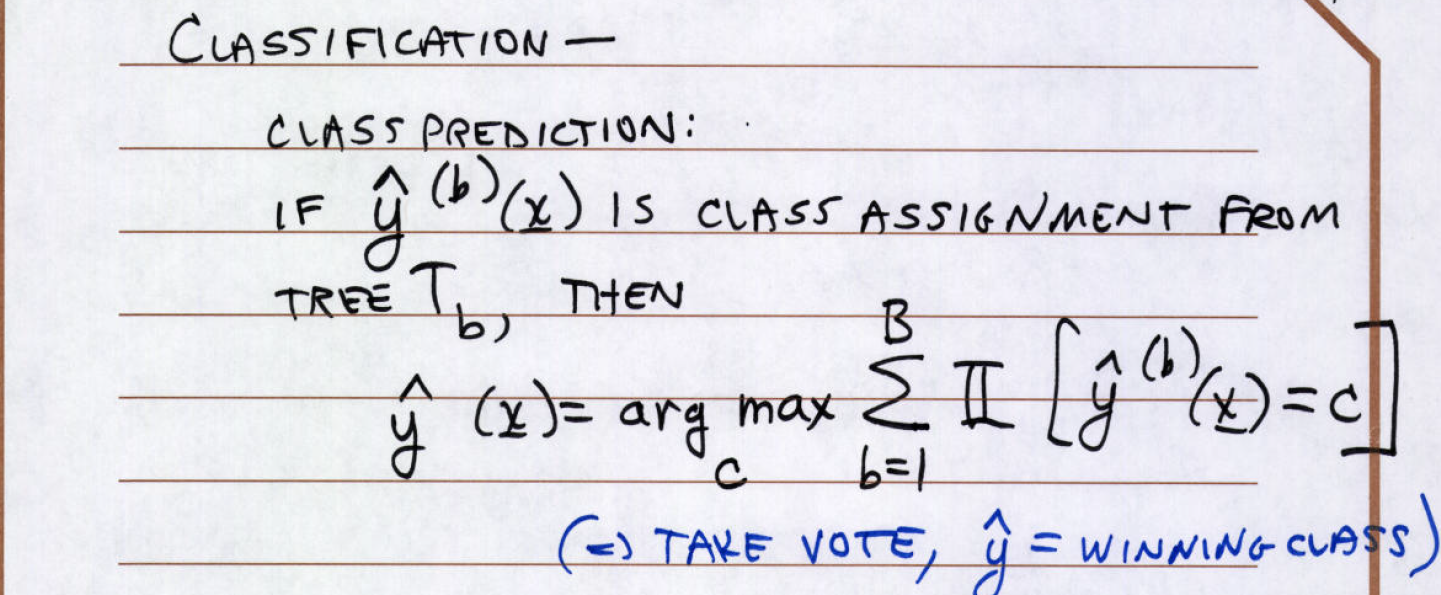 CLASSIFICATION —
CLASS PREDICTION:
IF ŷ^(b)(x̲) IS CLASS ASSIGNMENT FROM
TREE T_b, THEN
ŷ(x̲) = arg max_c Σ_{b=1}^{B} 𝕀 [ŷ^(b)(x̲) = c]
(⇔ TAKE VOTE, ŷ = WINNING CLASS)